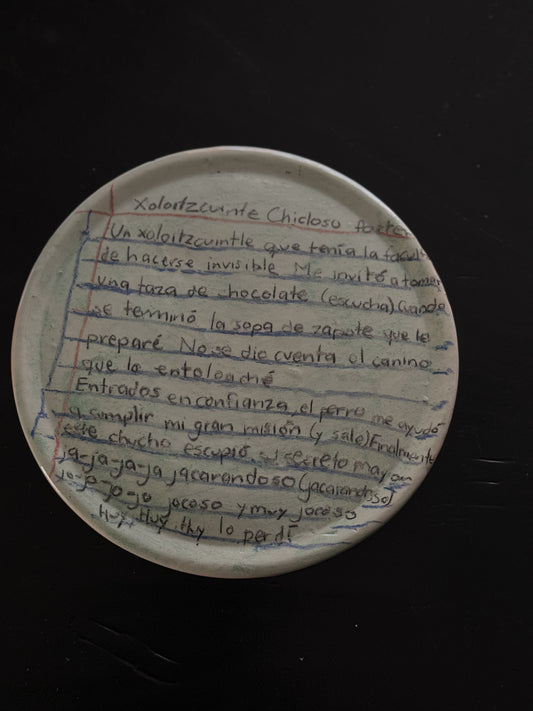 Xoloitzcuinte Chicloso
Un xoloitzcuintle que tenía la facult
de hacerse invisible Me invitó a tomar
una taza de hocolate (escucha) Cuando
se terminó la sopa de zapote que le
preparé No se dio cuenta el canino
que lo entoloaché
Entrados en confianza, el perro me ayudó
a cumplir mi gran misión (y sale) Finalmente
este chucho escupió su secreto mayor
ja-ja-ja-ja jacarandoso (jacarandoso)
jo-jo-jo-jo jocoso y muy jocoso
Huy Huy Huy lo perdí